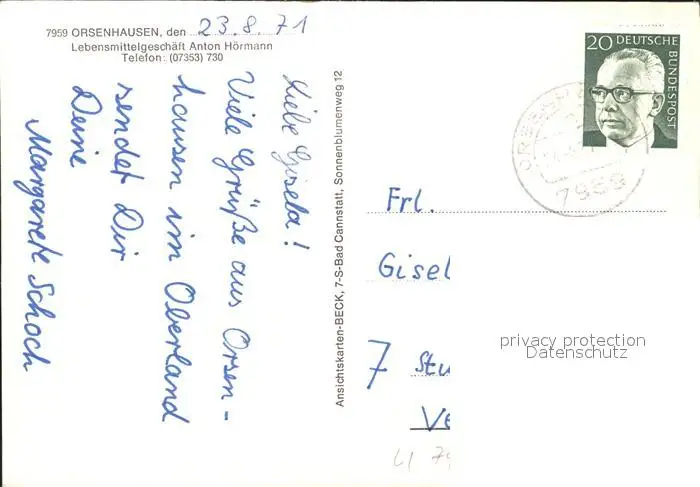 7959 ORSENHAUSEN, den 23.8.71
Lebensmittelgeschäft Anton Hörmann
Telefon: (07353) 730
Liebe Gisela!
Viele Grüße aus Orsen-
hausen im Oberland
sendet Dir
Deine
Margarete Schoch
Ansichtskarten-BECK, 7-S-Bad Cannstatt, Sonnenblumenweg 12
20 DEUTSCHE
BUNDESPOST
Frl.
Gisel
7 Stu
Ve
privacy protection
Datenschutz